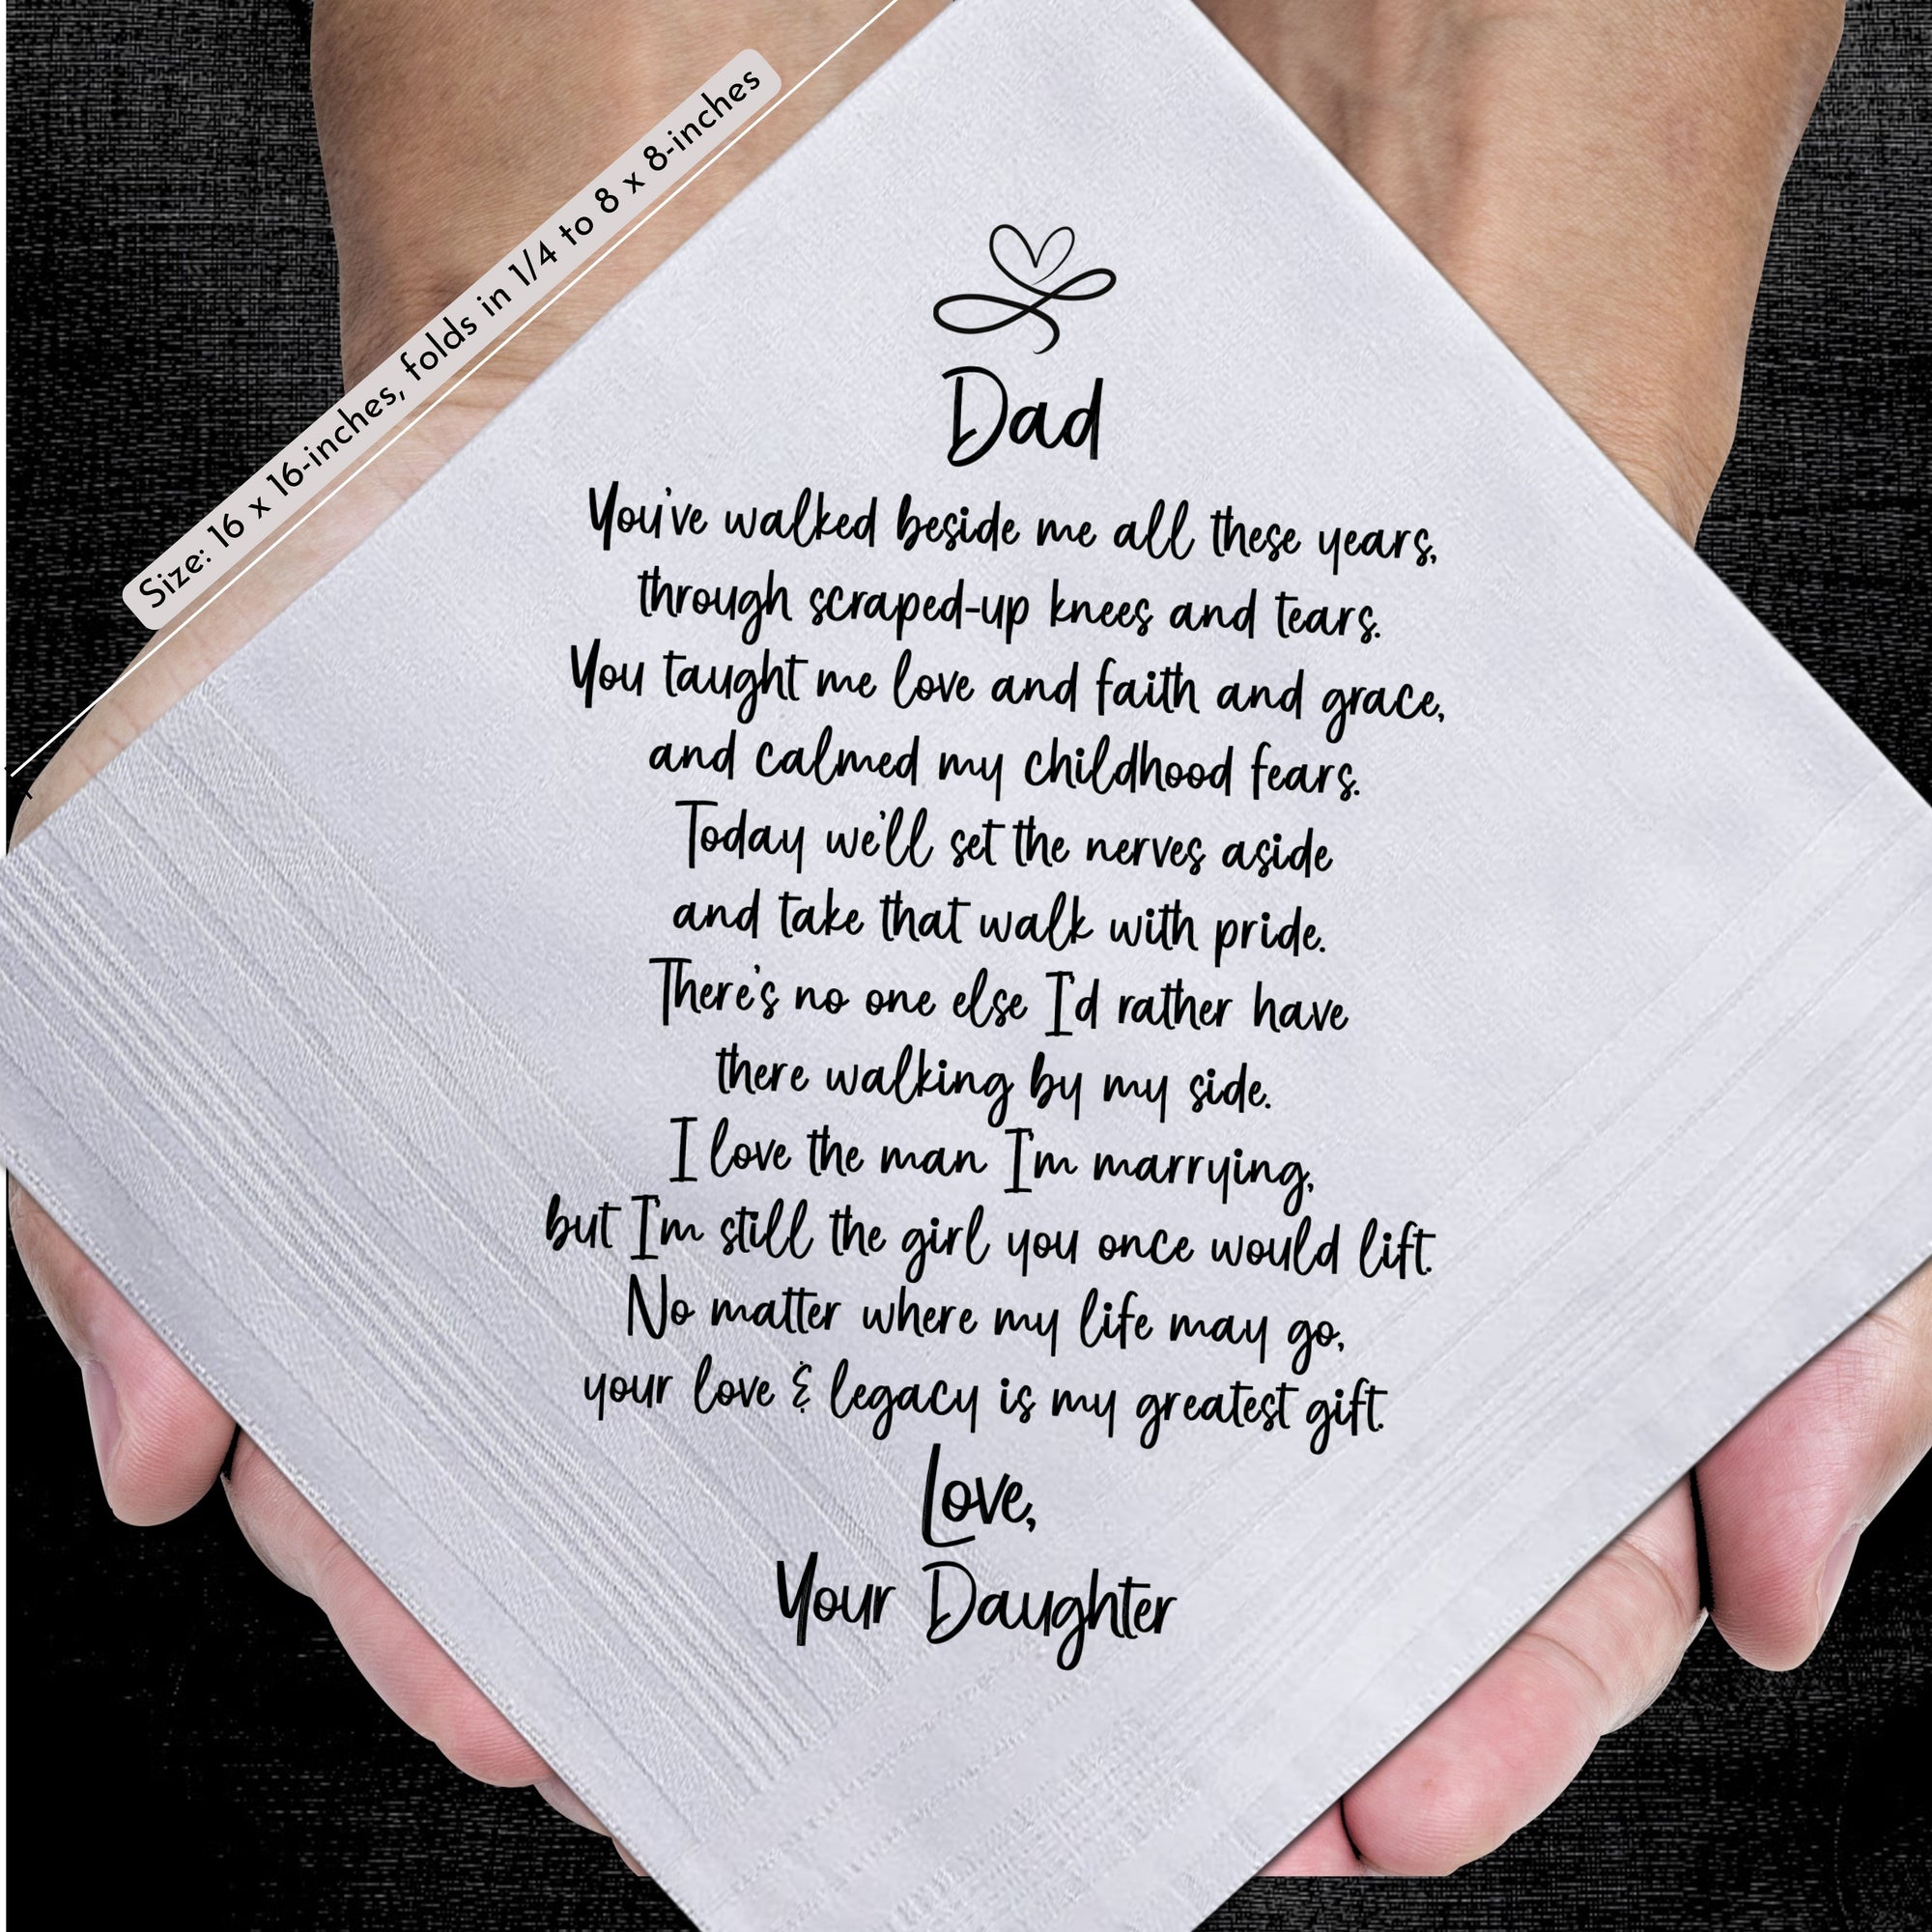 Size: 16 x 16-inches, folds in 1/4 to 8 x 8-inches
Dad
You've walked beside me all these years,
through scraped-up knees and tears.
You taught me love and faith and grace,
and calmed my childhood fears.
Today we'll set the nerves aside
and take that walk with pride.
There's no one else I'd rather have
there walking by my side.
I love the man I'm marrying,
but I'm still the girl you once would lift.
No matter where my life may go,
your love & legacy is my greatest gift.
Love,
Your Daughter